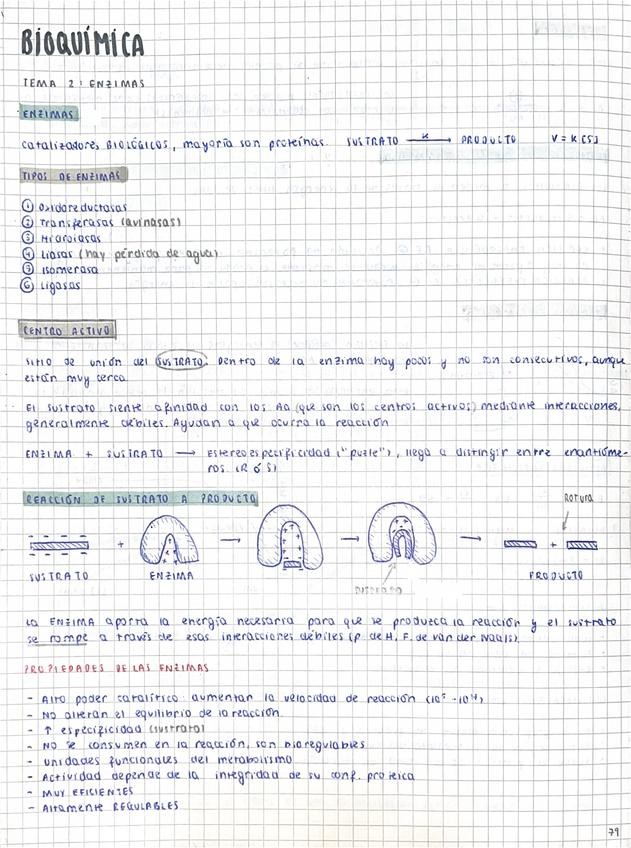 BIOQUÍMICA
TEMA 2: ENZIMAS
ENZIMAS
Catalizadores BIOLÓGICOS, mayoría son proteínas. SUSTRATO K→ PRODUCTO V = K [S]
TIPOS DE ENZIMAS
① Oxidoreductasas
② Transferasas (quinasas)
③ Hidrolasas
④ Liasas (hay pérdida de agua)
⑤ Isomerasa
⑥ Ligasas
CENTRO ACTIVO
Sitio de unión del SUSTRATO. Dentro de la enzima hay pocos y no son consecutivos, aunque
están muy cerca
El sustrato siente afinidad con los Aa (que son los centros activos) mediante interacciones,
generalmente débiles. Ayudan a que ocurra la reacción
ENZIMA + SUSTRATO → Estereoespecificidad ("puzle"), llega a distingir entre enantióme-
ros (R ó S)
REACCIÓN DE SUSTRATO A PRODUCTO
Rotura
+ → → → +
SUSTRATO ENZIMA PRODUCTO
La ENZIMA aporta la energía necesaria para que se produzca la reacción y el sustrato
se rompe a través de esas interacciones débiles (p. de H, F. de van der Waals).
PROPIEDADES DE LAS ENZIMAS
- Alto poder catalítico aumentan la velocidad de reacción
- NO alteran el equilibrio de la reacción.
- ↑ especificidad (sustrato)
- NO se consumen en la reacción, son bioregulables
- Unidades funcionales del metabolismo
- Actividad depende de la integridad de su conf. proteica
- MUY EFICIENTES
- Altamente REGULABLES
79